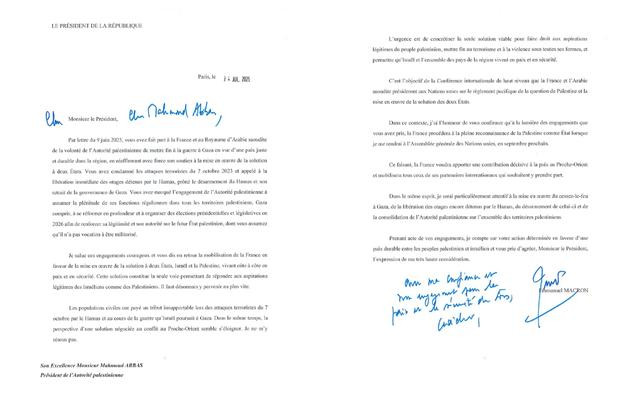 LE PRÉSIDENT DE LA RÉPUBLIQUE
Paris, le 24 JUL. 2025
Cher Monsieur le Président, Cher Mahmoud Abbas,
Par lettre du 9 juin 2025, vous avez fait part à la France et au Royaume d'Arabie saoudite
de la volonté de l'Autorité palestinienne de mettre fin à la guerre à Gaza en vue d'une paix juste
et durable dans la région, en réaffirmant avec force son soutien à la mise en œuvre de la solution
à deux États. Vous avez condamné les attaques terroristes du 7 octobre 2023 et appelé à la
libération immédiate des otages détenus par le Hamas, prôné le désarmement du Hamas et son
retrait de la gouvernance de Gaza. Vous avez marqué l'engagement de l'Autorité palestinienne à
assumer la plénitude de ses fonctions régaliennes dans tous les territoires palestiniens, Gaza
compris, à se réformer en profondeur et à organiser des élections présidentielles et législatives en
2026 afin de renforcer sa légitimité et son autorité sur le futur État palestinien, dont vous assurez
qu'il n'a pas vocation à être militarisé.
Je salue ces engagements courageux et vous dis en retour la mobilisation de la France en
faveur de la mise en œuvre de la solution à deux États, Israël et la Palestine, vivant côte à côte en
paix et en sécurité. Cette solution constitue la seule voie permettant de répondre aux aspirations
légitimes des Israéliens comme des Palestiniens. Il faut désormais y parvenir au plus vite.
Les populations civiles ont payé un tribut insupportable lors des attaques terroristes du 7
octobre par le Hamas et au cours de la guerre qu'Israël poursuit à Gaza. Dans le même temps, la
perspective d'une solution négociée au conflit au Proche-Orient semble s'éloigner. Je ne m'y
résous pas.
Son Excellence Monsieur Mahmoud ABBAS
Président de l'Autorité palestinienne
L'urgence est de concrétiser la seule solution viable pour faire droit aux aspirations
légitimes du peuple palestinien, mettre fin au terrorisme et à la violence sous toutes ses formes, et
permettre qu'Israël et l'ensemble des pays de la région vivent en paix et en sécurité.
C'est l'objectif de la Conférence internationale de haut niveau que la France et l'Arabie
saoudite présideront aux Nations unies sur le règlement pacifique de la question de Palestine et la
mise en œuvre de la solution des deux États.
Dans ce contexte, j'ai l'honneur de vous confirmer qu'à la lumière des engagements que
vous avez pris, la France procédera à la pleine reconnaissance de la Palestine comme État lorsque
je me rendrai à l'Assemblée générale des Nations unies, en septembre prochain.
Ce faisant, la France voudra apporter une contribution décisive à la paix au Proche-Orient et
mobilisera tous ceux de ses partenaires internationaux qui souhaitent y prendre part.
Dans le même esprit, je serai particulièrement attentif à la mise en œuvre du cessez-le-feu
à Gaza, de la libération des otages encore détenus par le Hamas, du désarmement de celui-ci et de
la consolidation de l'Autorité palestinienne sur l'ensemble des territoires palestiniens.
Prenant acte de vos engagements, je compte sur votre action déterminée en faveur d'une
paix durable entre les peuples palestinien et israélien et vous prie d'agréer, Monsieur le Président,
l'expression de ma très haute considération.
avec ma confiance et
mon engagement pour la
paix et la sécurité de tous,
Emmanuel MACRON